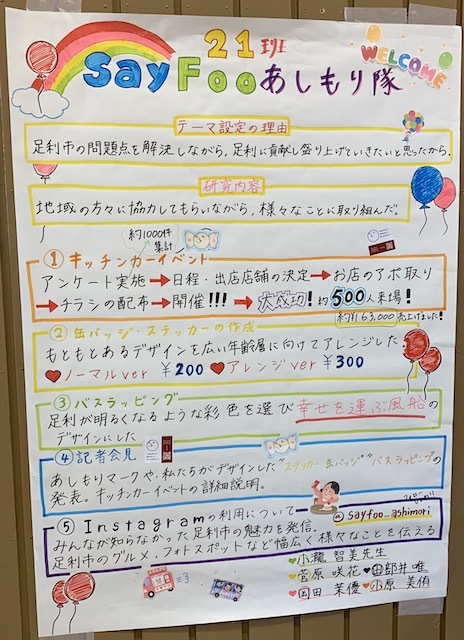 21班
WELCOME
SayFooあしもり隊
テーマ設定の理由
足利市の問題点を解決しながら、足利に貢献し盛り上げていきたいと思ったから。
研究内容
地域の方々に協力してもらいながら、様々なことに取り組んだ。
約1000件
集計
①キッチンカーイベント
アンケート実施→日程・出店店舗の決定→お店のアポ取り
→チラシの配布→開催!!!→大成功!約500人来場!
約¥163,000売上げました!
②缶バッジ・ステッカーの作成
もともとあるデザインを広い年齢層に向けてアレンジした
ノーマルver ¥200 アレンジver ¥300
③バスラッピング
足利が明るくなるような彩色を選び幸せを運ぶ風船の
デザインにした
④記者会見
あしもりマークや、私たちがデザインした"ステッカー缶バッジ"バスラッピングの
発表。キッチンカーイベントの詳細説明。
⑤Instagramの利用について
@sayfoo_ashimori
みんなが知らなかった足利市の魅力を発信。
足利市のグルメ・フォトスポットなど幅広く様々なことを伝える
小瀧 智美先生
菅原 咲花 田部井 唯
園田 茉優 小原 美侑